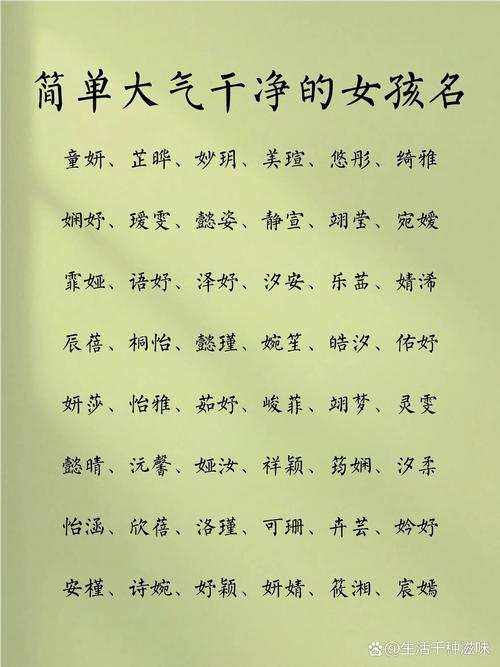 简单大气干净的女孩名
童妍、芷晔、妙玥、美瑄、悠彤、绮雅
娴妤、瑷雯、懿姿、静宣、翊莹、宛嫒
霏娅、语妤、泽妤、汐安、乐茜、婧浠
辰蓓、桐怡、懿瑾、婉笙、皓汐、佑妤
妍莎、怡雅、茹妤、峻菲、翊梦、灵雯
懿晴、沅馨、娅汝、祥颖、筠娴、汐柔
怡涵、欣蓓、洛瑾、可珊、卉芸、妗妤
安槿、诗婉、妤颖、妍婧、筱湘、宸嫣
@生活千种滋味